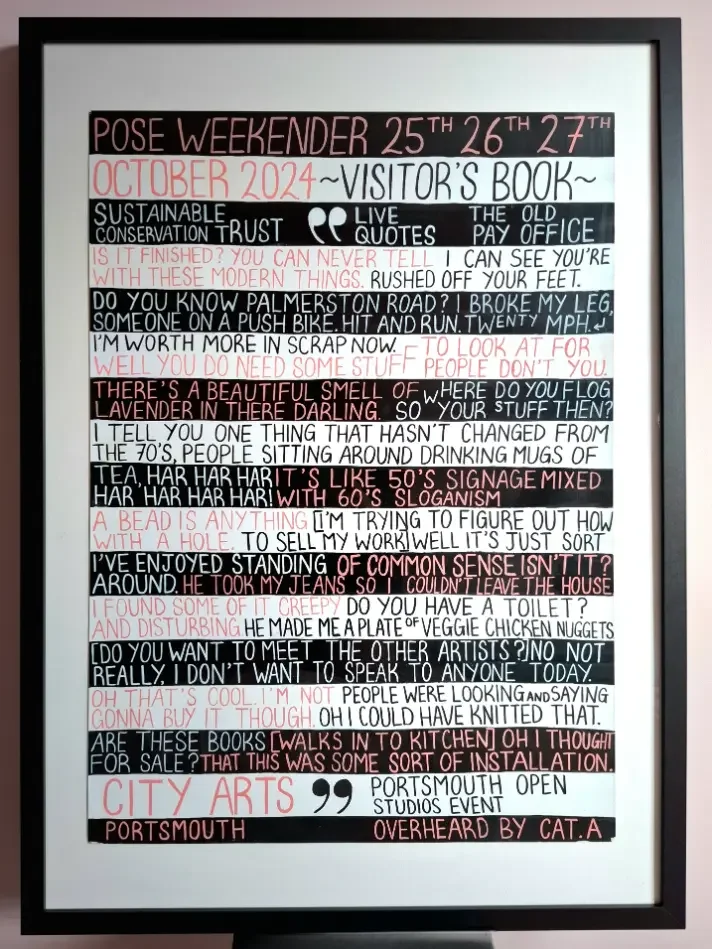 POSE WEEKENDER 25TH 26TH 27TH
OCTOBER 2024~VISITOR'S BOOK~
SUSTAINABLE CONSERVATION TRUST
❛❛ LIVE QUOTES
THE OLD PAY OFFICE
IS IT FINISHED? YOU CAN NEVER TELL
WITH THESE MODERN THINGS.
I CAN SEE YOU'RE
RUSHED OFF YOUR FEET.
DO YOU KNOW PALMERSTON ROAD? I BROKE MY LEG,
SOMEONE ON A PUSH BIKE. HIT AND RUN. TWENTY MPH.↵
I'M WORTH MORE IN SCRAP NOW.
WELL YOU DO NEED SOME STUFF
TO LOOK AT FOR
PEOPLE DON'T YOU.
THERE'S A BEAUTIFUL SMELL OF
LAVENDER IN THERE DARLING.
WHERE DO YOU FLOG
SO YOUR STUFF THEN?
I TELL YOU ONE THING THAT HASN'T CHANGED FROM
THE 70'S, PEOPLE SITTING AROUND DRINKING MUGS OF
TEA, HAR HAR HAR
HAR HAR HAR HAR!
IT'S LIKE 50'S SIGNAGE MIXED
WITH 60'S SLOGANISM
A BEAD IS ANYTHING
WITH A HOLE.
[I'M TRYING TO FIGURE OUT HOW
TO SELL MY WORK] WELL IT'S JUST SORT
I'VE ENJOYED STANDING
AROUND.
OF COMMON SENSE ISN'T IT?
HE TOOK MY JEANS SO I COULDN'T LEAVE THE HOUSE
I FOUND SOME OF IT CREEPY
AND DISTURBING
DO YOU HAVE A TOILET?
HE MADE ME A PLATE OF VEGGIE CHICKEN NUGGETS
[DO YOU WANT TO MEET THE OTHER ARTISTS?] NO NOT
REALLY. I DON'T WANT TO SPEAK TO ANYONE TODAY.
OH THAT'S COOL. I'M NOT
GONNA BUY IT THOUGH.
PEOPLE WERE LOOKING AND SAYING
OH I COULD HAVE KNITTED THAT.
ARE THESE BOOKS
FOR SALE?
[WALKS IN TO KITCHEN] OH I THOUGHT
THAT THIS WAS SOME SORT OF INSTALLATION.
CITY ARTS ❜❜
PORTSMOUTH OPEN
STUDIOS EVENT
PORTSMOUTH
OVERHEARD BY CAT.A